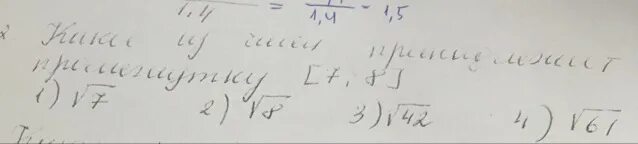 1,4 = 1,4 = 1,5
2 Какое из чисел принадлежит
промежутку [7, 8]
1) √7 2) √8 3) √42 4) √61